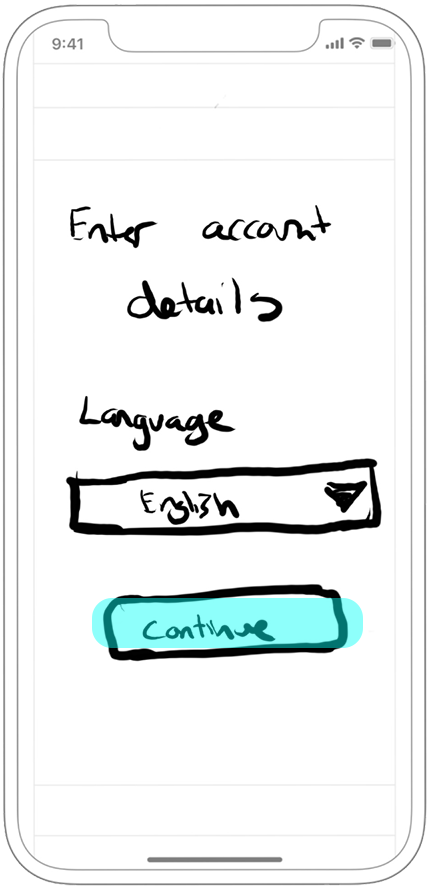 9:41
Enter account
details
Language
English
Continue